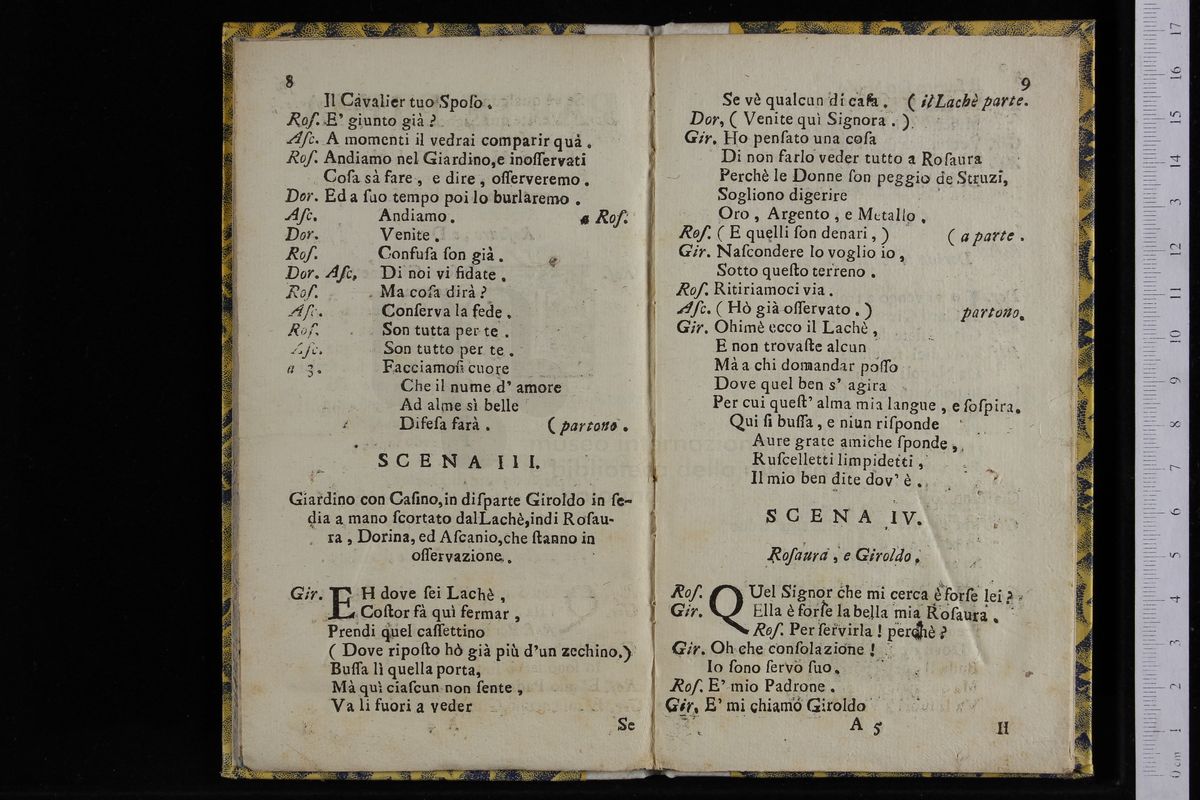 8
Il Cavalier tuo Spoſo .
Roſ. E' giunto già ?
Aſc. A momenti il vedrai comparir quà .
Roſ. Andiamo nel Giardino,e inoſſervati
Coſa sà fare , e dire , oſſerveremo .
Dor. Ed a ſuo tempo poi lo burlaremo .
Aſc. Andiamo . a Roſ.
Dor. Venite .
Roſ. Confuſa ſon già .
Dor. Aſc, Di noi vi fidate .
Roſ. Ma coſa dirà ?
Aſc. Conſerva la fede .
Roſ. Son tutta per te .
Aſc. Son tutto per te .
a 3. Facciamoſi cuore
Che il nume d' amore
Ad alme sì belle
Difeſa farà . ( partono .
SCENA III.
Giardino con Caſino,in diſparte Giroldo in ſe-
dia a mano ſcortato dalLachè,indi Roſau-
ra , Dorina, ed Aſcanio,che ſtanno in
oſſervazione .
Gir. EH dove ſei Lachè ,
Coſtor fà quì fermar ,
Prendi quel caſſettino
( Dove ripoſto hò già più d'un zechino.)
Buſſa lì quella porta,
Mà quì ciaſcun non ſente ,
Va lì fuori a veder
Se
9
Se vè qualcun di caſa . ( il Lachè parte.
Dor, ( Venite quì Signora . )
Gir. Ho penſato una coſa
Di non farlo veder tutto a Roſaura
Perchè le Donne ſon peggio de Struzi,
Sogliono digerire
Oro , Argento , e Metallo .
Roſ. ( E quelli ſon denari , ) ( a parte .
Gir. Naſcondere lo voglio io ,
Sotto queſto terreno .
Roſ. Ritiriamoci via .
Aſc. ( Hò già oſſervato . ) partono.
Gir. Ohimè ecco il Lachè ,
E non trovaſte alcun
Mà a chi domandar poſſo
Dove quel ben s' agira
Per cui queſt' alma mia langue , e ſoſpira.
Qui ſi buſſa , e niun riſponde
Aure grate amiche ſponde ,
Ruſcelletti limpidetti ,
Il mio ben dite dov' è .
SCENA IV.
Roſaura , e Giroldo .
Roſ. QUel Signor che mi cerca è forſe lei ?
Gir. Ella è forſe la bella mia Roſaura .
Roſ. Per ſervirla ! perchè ?
Gir. Oh che conſolazione !
Io ſono ſervo ſuo .
Roſ. E' mio Padrone .
Gir. E' mi chiamo Giroldo
A 5 Il
17
16
15
14
13
12
11
10
9
8
7
6
5
4
3
2
1
0 cm